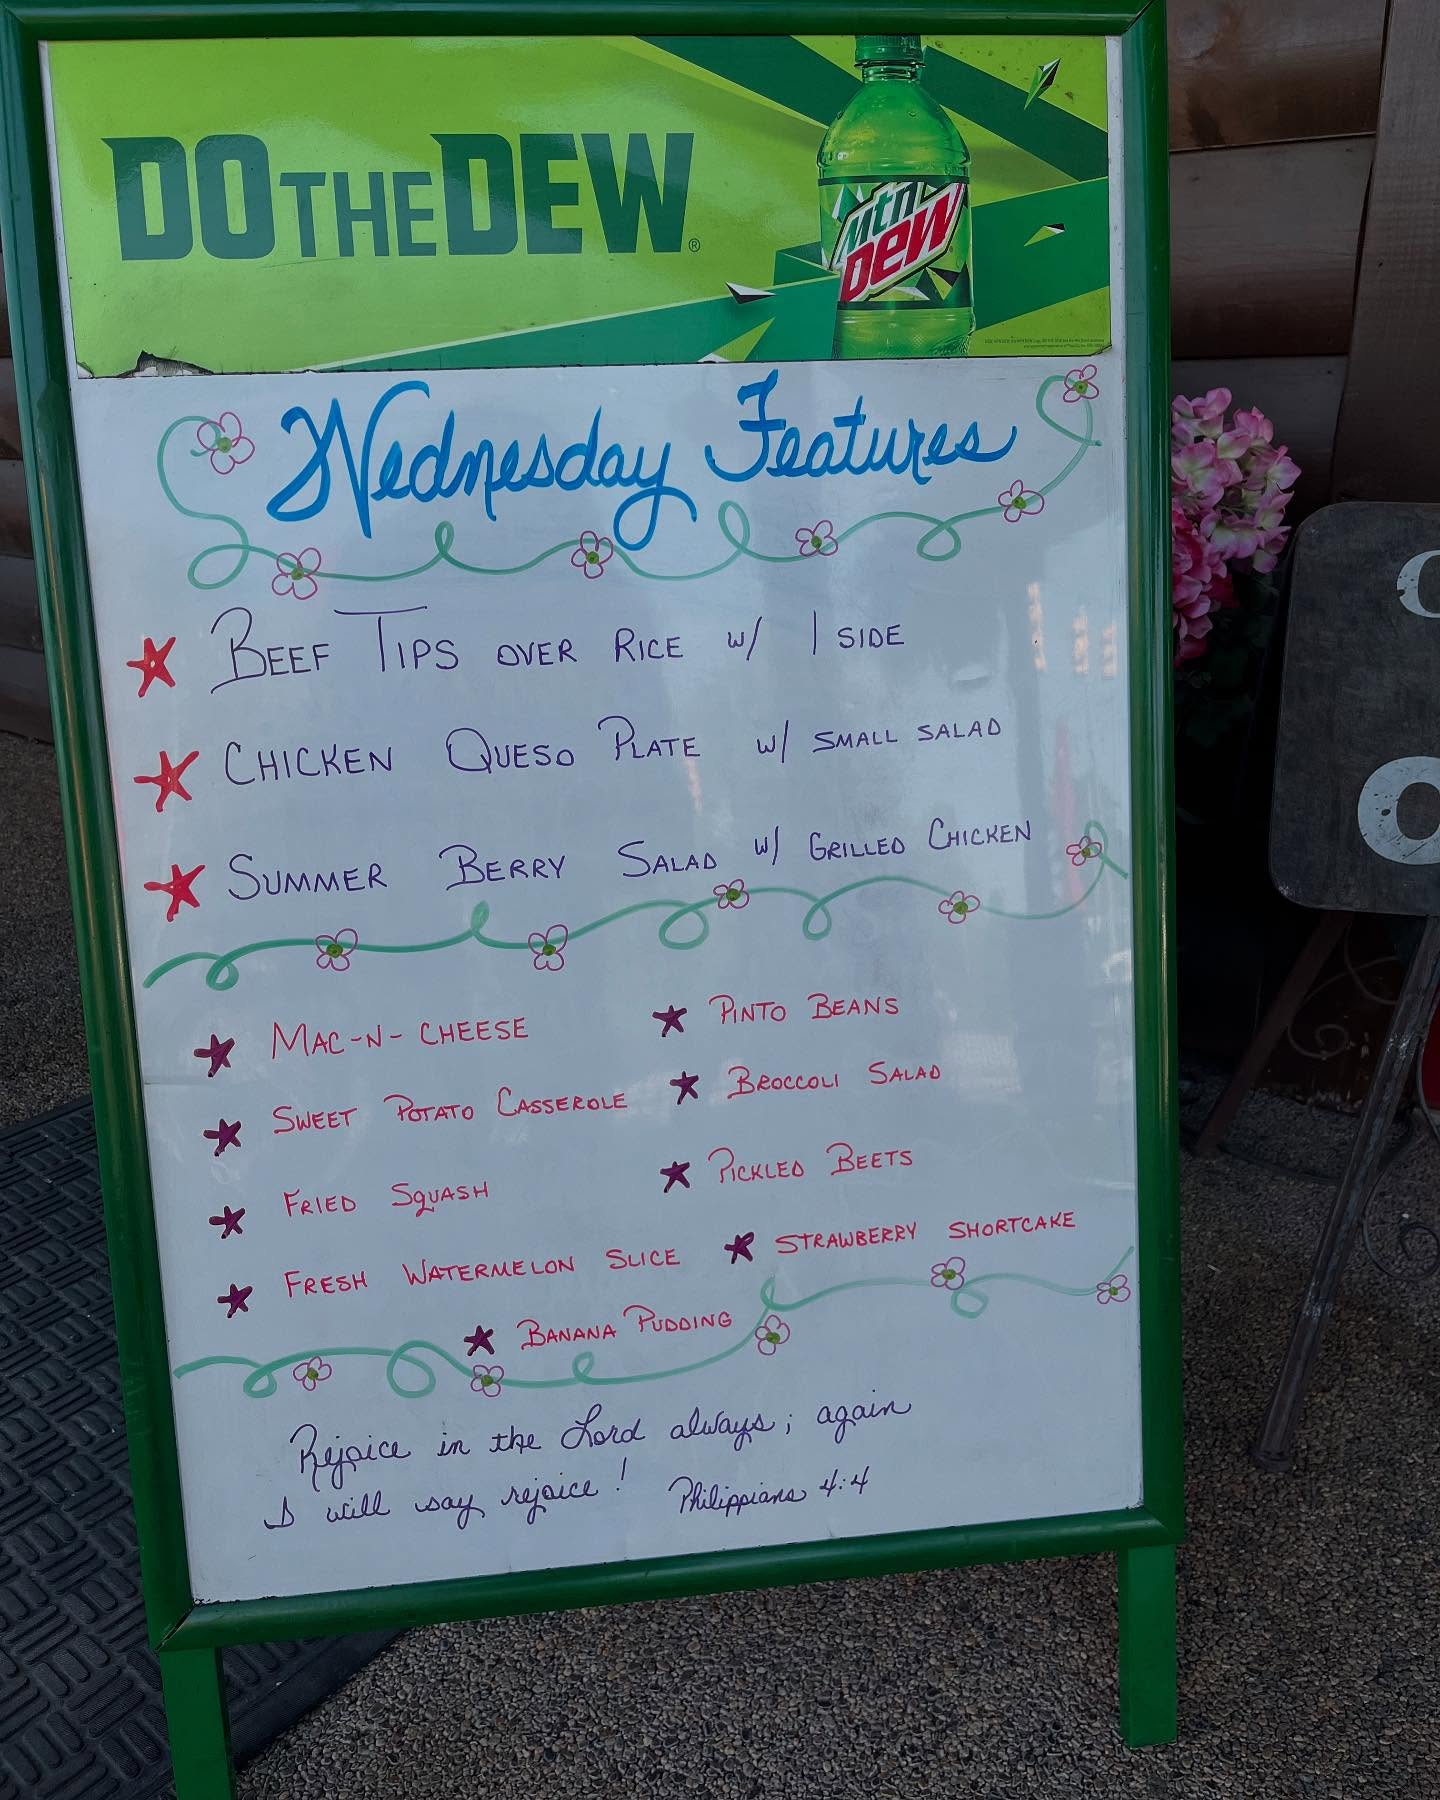 DO THE DEW®
Mtn
DEW
Wednesday Features
BEEF TIPS OVER RICE W/ 1 SIDE
CHICKEN QUESO PLATE W/ SMALL SALAD
SUMMER BERRY SALAD W/ GRILLED CHICKEN
MAC-N-CHEESE
PINTO BEANS
SWEET POTATO CASSEROLE
BROCCOLI SALAD
FRIED SQUASH
PICKLED BEETS
FRESH WATERMELON SLICE
STRAWBERRY SHORTCAKE
BANANA PUDDING
Rejoice in the Lord always; again
I will say rejoice! Philippians 4:4